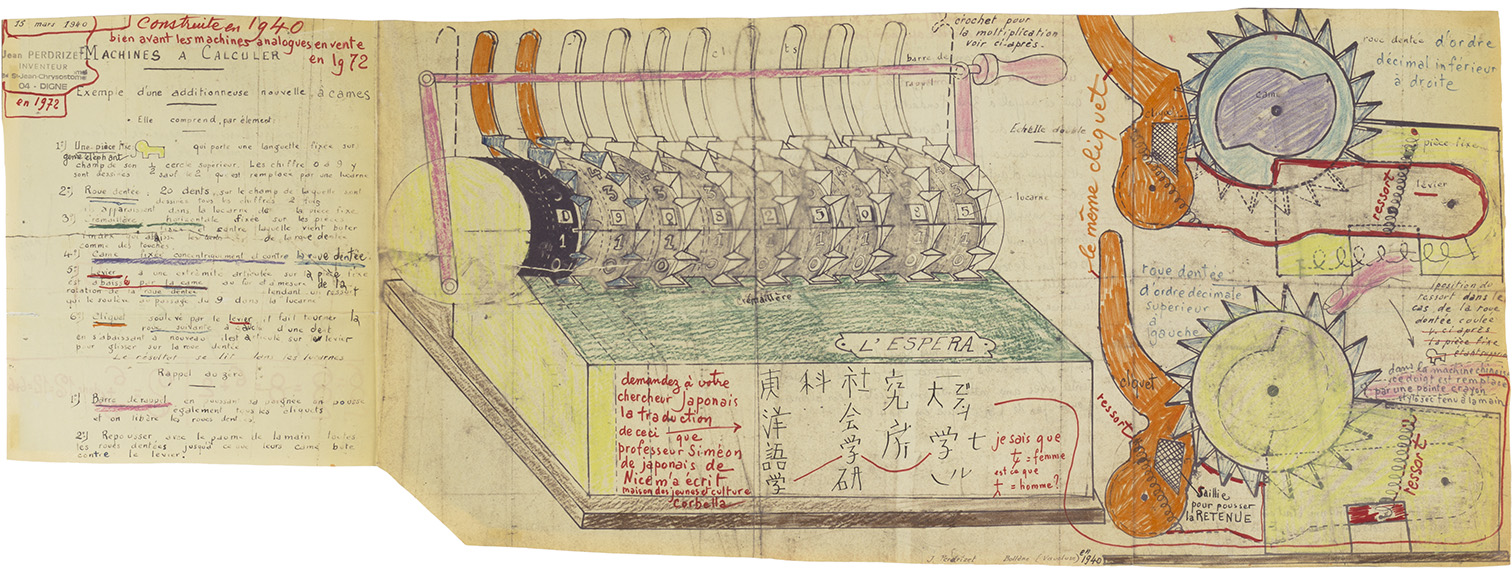 15 mars 1940
Construite en 1940
bien avant les machines analogues en vente
en 1972
Jean PERDRIZET
INVENTEUR
St-Jean-Chrysostome
04 - DIGNE
en 1972
MACHINES A CALCULER
Exemple d'une additionneuse nouvelle à cames
• Elle comprend, par élément:
1°) Une pièce fixe qui porte une languette fixée sur
gome elephant
champ de son 1/2 cercle supérieur. Les chiffre 0 à 9 y
sont dessinés sauf le 2 qui est remplacé par une lucarne
2°) Roue dentée, 20 dents, sur le champ de laquelle sont
dessinés tous les chiffres 2 fois
apparaissant dans la lucarne de la pièce fixe
3°) Crémaillère horizontale fixée sur les pièces
contre laquelle vient buter
l'index de la roue dentée
comme des touches.
4°) Came fixée concentriquement et contre la roue dentée
5°) Levier à une extrémité articulée sur la pièce fixe
est abaissé par la came au fur et à mesure de la
rotation de la roue dentée tendant un ressort
qui le soulève au passage du 9 dans la lucarne
6°) Cliquet soulevé par le levier, il fait tourner la
roue suivante à gauche d'une dent
en s'abaissant à nouveau articulé sur levier
pour glisser sur la roue dentée
Le résultat se lit dans les lucarnes
Rappel au zéro
1°) Barre de rappel en poussant sa poignée on pousse
également tous les cliquets
et on libère les roues dentées
2°) Repousser avec la paume de la main toutes
les roues dentées jusqu'à ce que leurs came bute
contre le levier.
crochet pour
la multiplication
voir ci-après.
cliquets
barre de
rappel
Echelle double
lucarne
0 9 0 8 2 5 0 8 5
crémaillère
L'ESPERA
demandez à votre
chercheur japonais
la traduction
de ceci que
professeur Siméon
de japonais de
Nice m'a écrit
maison des jeunes et culture
Corbella
東洋語学
科
社会学研
究所
大学
je sais que
= femme
est ce que
= homme?
J. Perdrizet Bollène (Vaucluse) en 1940
le même cliquet
roue dentée d'ordre
décimal inférieur
à droite
came
cliquet
pièce fixe
levier
ressort
roue dentée
d'ordre décimale
supérieur
à
gauche
position du
ressort dans le
cas de la roue
dentée coulée
ci après
la pièce fixe
dans la machine
ce doigt est remplacé
par une pointe crayon
tenu à la main
cliquet
ressort
ressort
saillie
pour pousser
la RETENUE